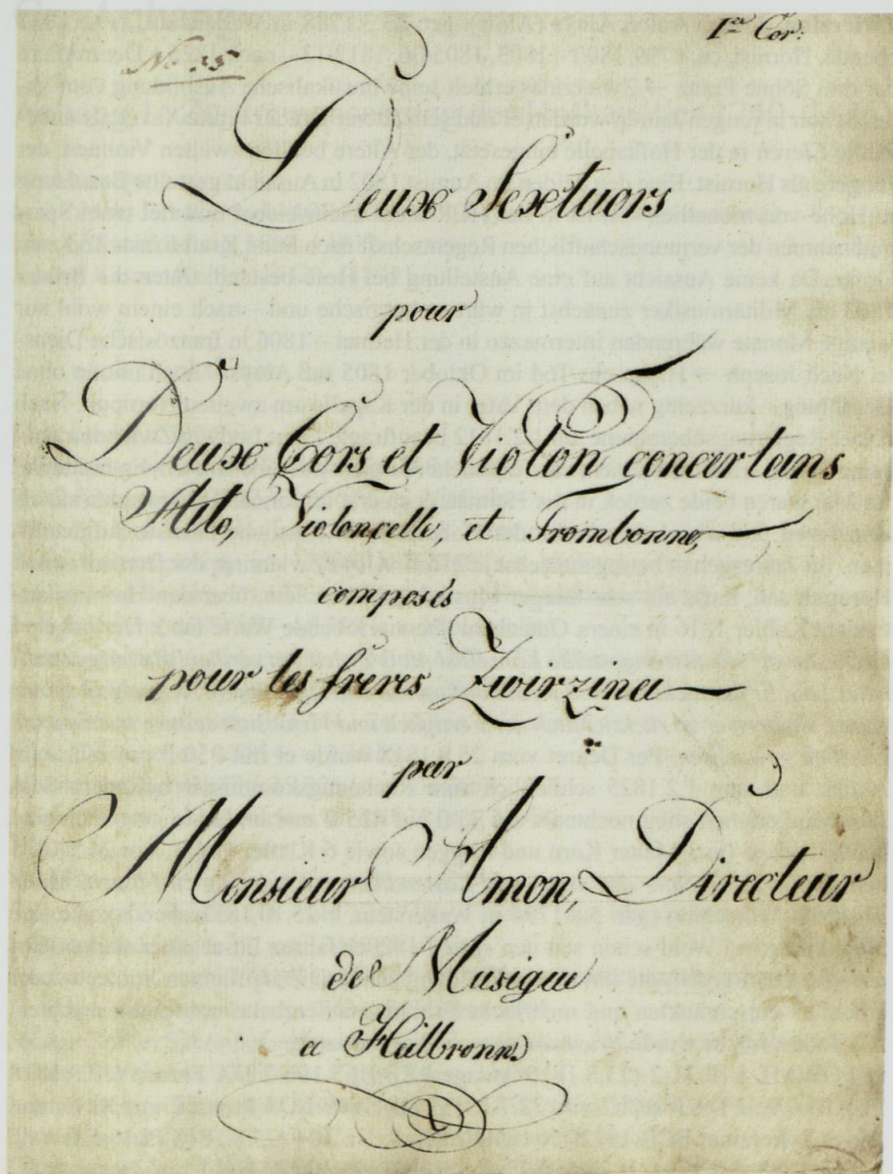 N. 35
I.re Cor:
Deux Sextuors
pour
Deux Cors et Violon concertans
Alto, Violoncelle, et Trombonne,
composés
pour les frères Zwirzina
par
Monsieur Amon, Directeur
de Musique
a Heilbronn